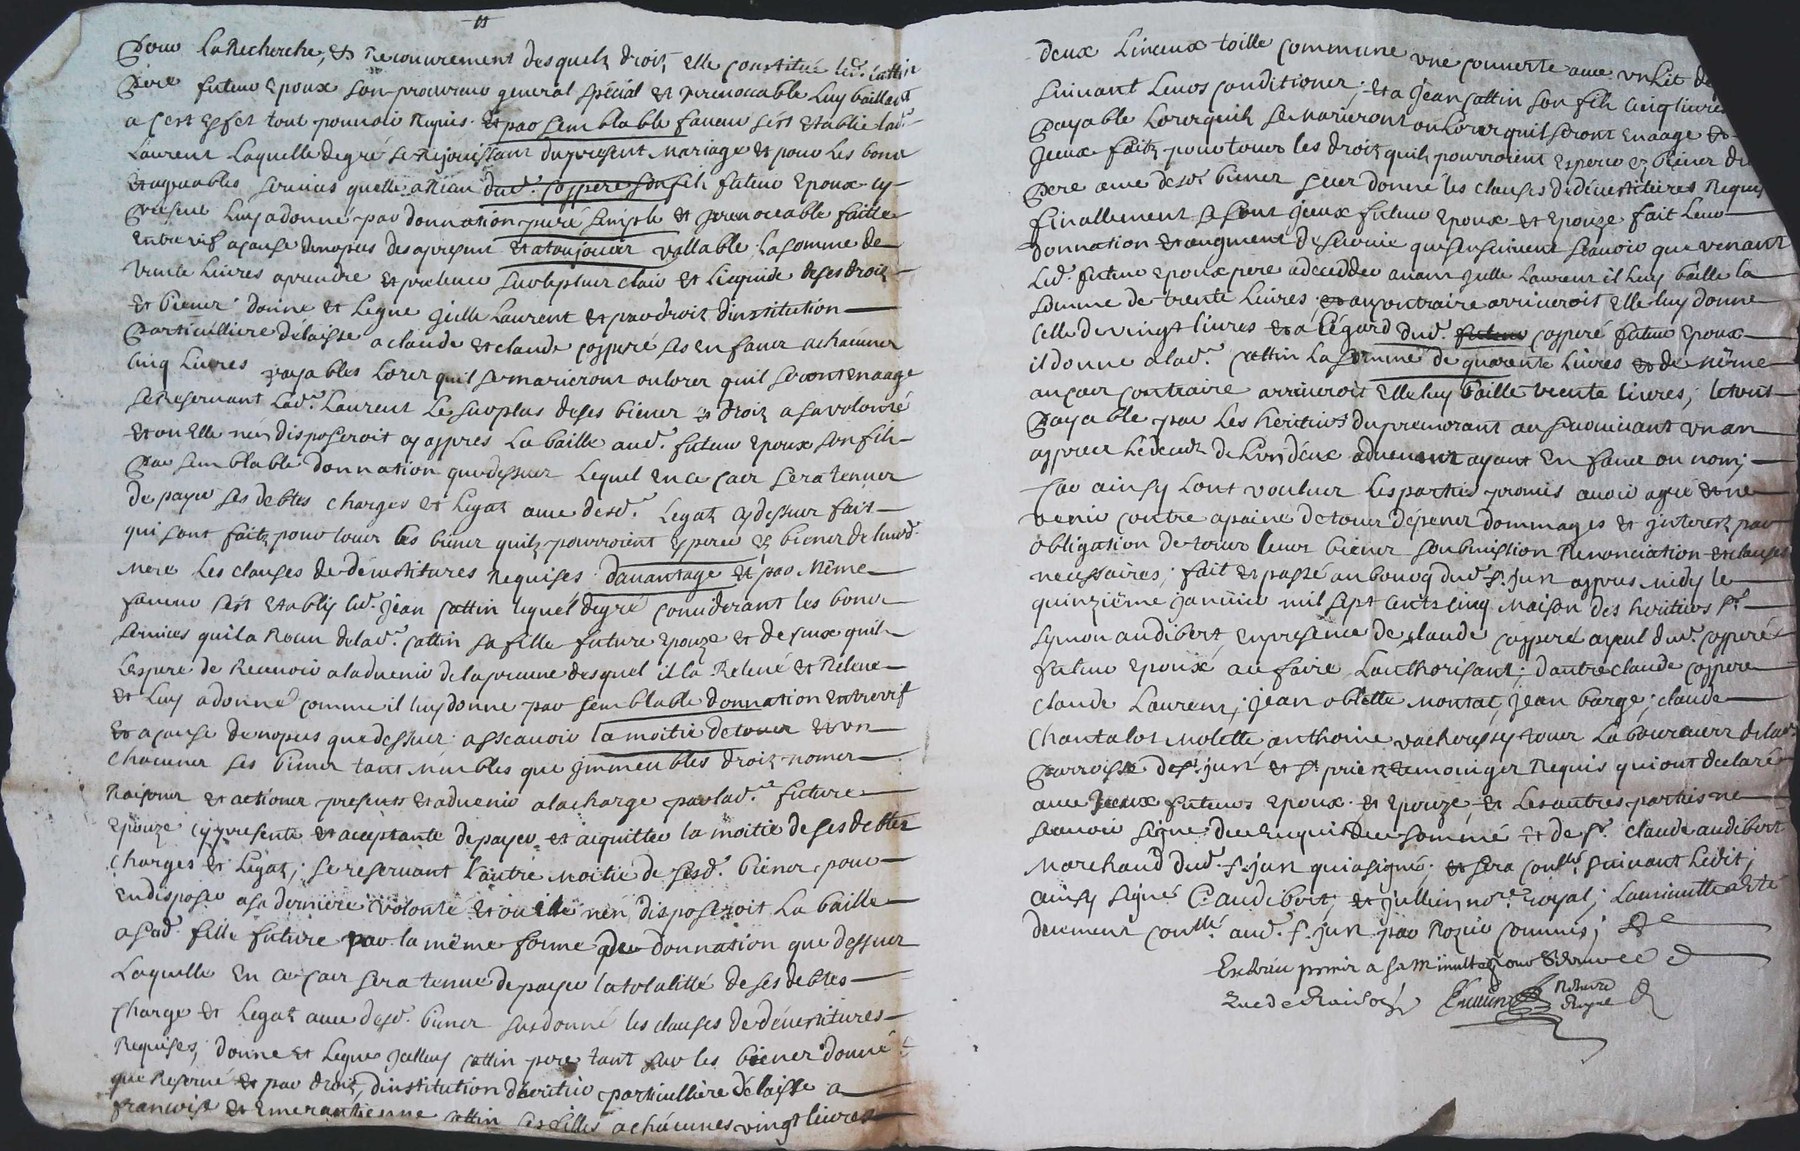 Pour la Recherche, et Recouvrement desquelz droit, elle constitue led. Cattin
Père futeur Epoux son procureur general spécial et jrrevocable luy baillant
a cest effet tout pouvoir Requis. et par semblable faveur s'est establie lad.e
Laurent laquelle de gré se Rejouissant du present Mariage et pour les bons
et agreables services quelle attien dud. Coppere son fils futeur Epoux cy
present luy a donné par donnation pure simple et jrrevocable faitte
entrevif a cause de nopces des apresent et a toujours vallable la somme de
vente livres a prendre et prelever sur le plus clair et liequide de ses droitz
et biener donne et Legue jcelle Laurent et par droit d'institution
Particulliere délaisse a claude et claude Copperé ses enfans a chacuner
cinq Livres payables Lorer quil se marieront ou lorer quil seront en aage
se Reservant lad.e Laurent le surplus de ses biener et droitz a sa volonté
et ou Elle n'en disposeroit cy appres la baille aud. futeur Epoux son fils
Par semblable donnation que dessuer Lequel en ce caer sera tenuer
de payer ses debtes charges et Legatz avec desd. Legatz cy dessuer fait
qui sont faitz pour touer les biener quilz pourroient esperer es biener de leurd.
mere Les clauses de dévestitures Requises. davantage et par Même
faveur s'est establis led. jean Cattin lequel de gré considerant les boner
services quil a Receu de lad.e Cattin sa fille future Epouze et de ceux quil
Espere de Recevoir a ladvenir de la preuve desquel il la Relevé et Releve
et luy a donné comme il luy donne par semblable donnation entrevif
et a cause de nopces que dessuer. asscavoir la moitié de touer et un
chacuner ses biener tant meubles que jmmeubles droitz nomer
Raisoner et actioner presents et advenir a la charge par lad.e future
Epouze cy presente et acceptante de payer et aiquitter la moitié de ses debtes
charges et Legatz; se reservant l'autre moitié de sesd. biener pour
en disposer a sa derniere volonté et ou il n'en disposeroit la baille
a sad. fille future par la même forme de donnation que dessuer
Laquelle en ce caer sera tenue de payer la totalitté de ses debtes
charge et Legatz avec desd. biener susdonné les clauses de dévestitures
Requises, donne et Legue jcelluy Cattin pere tant sur les biener donné
que Reservé et par droit d'institution d'heritier particulliere délaisse a
francoise et Emerantienne Cattin ses filles a chacunes vingt livres
deux Linceux toille commune une couverte avec un Lit de
suivant Leurs conditioner; et a Jean Cattin son fils cinq livres
Payable Lorer quilz se marieront ou Lorer quil seront en aage et
jceux faitz pour touer les droitz quilz pourroient esperer es biener du
Pere avec desd. biener suer donné les clauses de dévestitures Requises
finallement se sont jceux futeur Epoux et Epouze fait leur
donnation et augment de survie qui s'ensuivent scavoir que venant
led. futeur Epoux pere a decedder avant jcelle Laurent il luy baille la
somme de trente livres; et au contraire arriveroit Elle luy donne
celle de vingt livres et a l'égard dud. Copperé futeur Epoux
il donne a lad.e Cattin la somme de quarente livres et de même
au caer contraire arriveroit elle luy baille trente livres, le tout
Payable par les heritiers du premorant au survivant un an
apprer le deceds de l'un d'eux advenant ayant enfaner ou non;
Car ainsy l'ont vouluer les parties promis avoir agré et ne
venir contre a paine de touer dépener dommages et jnterestz par
obligation de touer leurs biener soubmission Renonciation et clauses
necessaires, fait et passé au bourg dud. st. jun appres midy le
quinzième janvier mil sept cents cinq maison des heritiers sr.
symon audibert, en presence de claude Copperé ayeul dud. Copperé
futeur Epoux au faire l'authorisant; d'autre claude coppere
claude Laurent, jean oblette montat, jean barge, claude
chantalot molette anthoine vachoussey touer Laboureuer de lad.e
Parroisse de st. jun et st. priest temoinger Requis qui ont declaré
avec jceux futeurs Epoux et Epouze et Les autres parties ne
scavoir signer de ce enquis de ce sommé et de sr. claude audibert
marchand dud. st. jun qui a signé. et sera contllé suivant ledit;
ainsy signé C. audibert, et jullien nore. royal; La minutte a esté
deuement contllé. aud. st. jun par Rozier commis;
Extrait prins a sa minutte
notaire
Royal